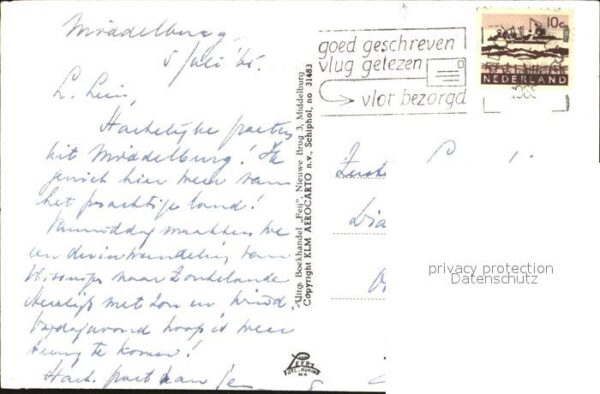 Middelburg
5 Juli '65.
L. Leni,
Hartelijke groeten
uit Middelburg! Ik
geniet hier weer van
het prachtige land!
Vanmiddag maakten we
een duinwandeling van
naar Zoutelande
Heerlijk met zon en wind.
hoop ik weer
terug te komen!
Hart. groet van je
Uitg. Boekhandel „Feij", Nieuwe Brug 3, Middelburg
Copyright KLM AEROCARTO n.v., Schiphol, no 31483
goed geschreven
vlug gelezen
vlot bezorgd
10c
NEDERLAND
privacy protection
Datenschutz